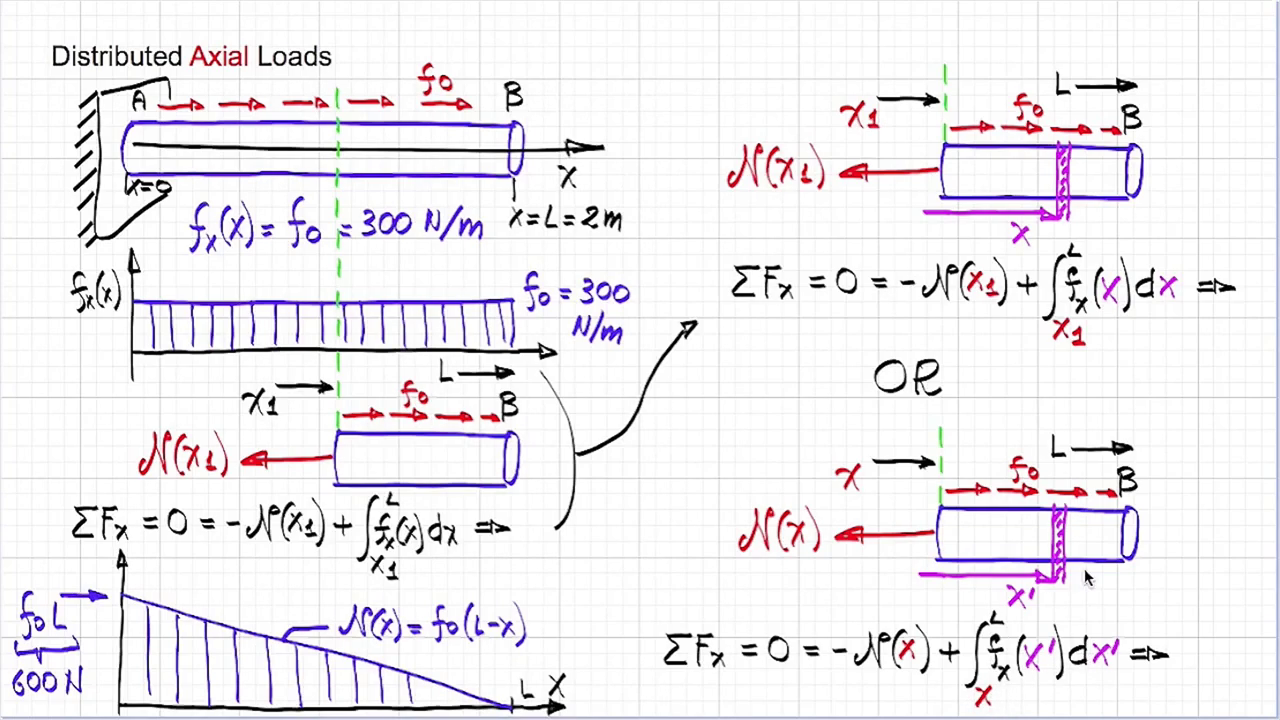 Distributed Axial Loads
A f0 B
x=0 x
fx(x) = f0 = 300 N/m x=L=2m
fx(x) f0 = 300
N/m
x1 L
f0 B
N(x1)
ΣFx = 0 = -N(x1) + ∫x1^L fx(x)dx ⇒
f0L N(x) = f0(L-x)
600N L x
x1 L
f0 B
N(x1)
x
ΣFx = 0 = -N(x1) + ∫x1^L fx(x)dx ⇒
OR
x L
f0 B
N(x)
x'
ΣFx = 0 = -N(x) + ∫x^L fx(x')dx' ⇒